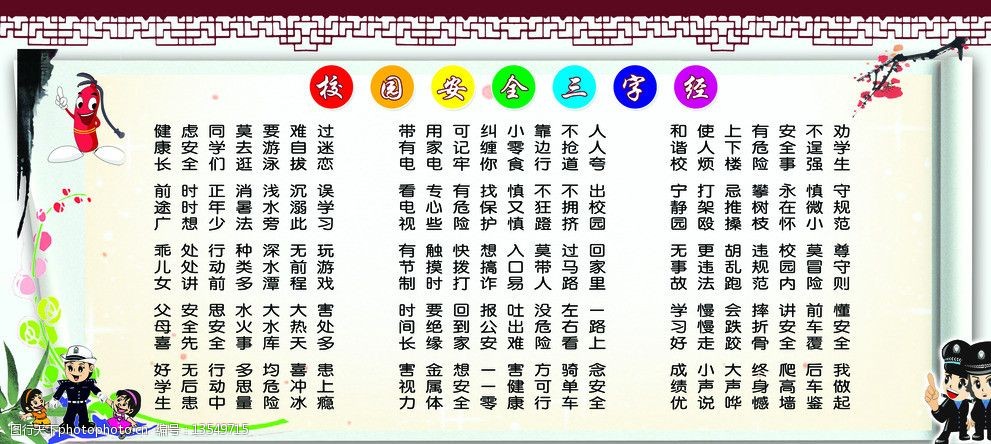 校园安全三字经
劝学生守规范尊守则懂安全我做起
不逞强慎微小莫冒险前车覆后车鉴
安全事永在怀校园内讲安全爬高墙
有危险攀树枝违规范摔折骨终身憾
上下楼忌推搡胡乱跑会跌跤大声哗
使人烦打架殴更违法慢慢走小声说
和谐校宁静园无事故学习好成绩优
人人夸出校园回家里一路上念安全
不抢道不拥挤过马路左右看骑单车
靠边行不狂蹬莫带人没危险方可行
小零食慎又慎入口易吐出难害健康
纠缠你找保护想搞诈报公安一一零
可记牢有危险快拨打回到家想安全
用家电专心些触摸时要绝缘金属体
带有电看电视有节制时间长害视力
过迷恋误学习玩游戏害处多患上瘾
难自拔沉溺此无前程大热天喜冲冰
要游泳浅水旁深水潭大水库均危险
莫去逛消暑法种类多水火事多思量
同学们正年少行动前思安全行动中
虑安全时时想处处讲安全先无后患
健康长前途广乖儿女父母喜好学生